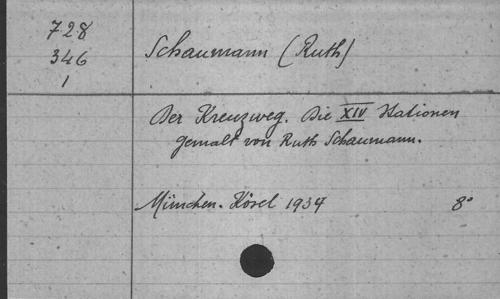 728
346
1
Schaumann (Ruth)
Der Kreuzweg. Die XIV Stationen
gemalt von Ruth Schaumann.
München. Kösel 1934 8°